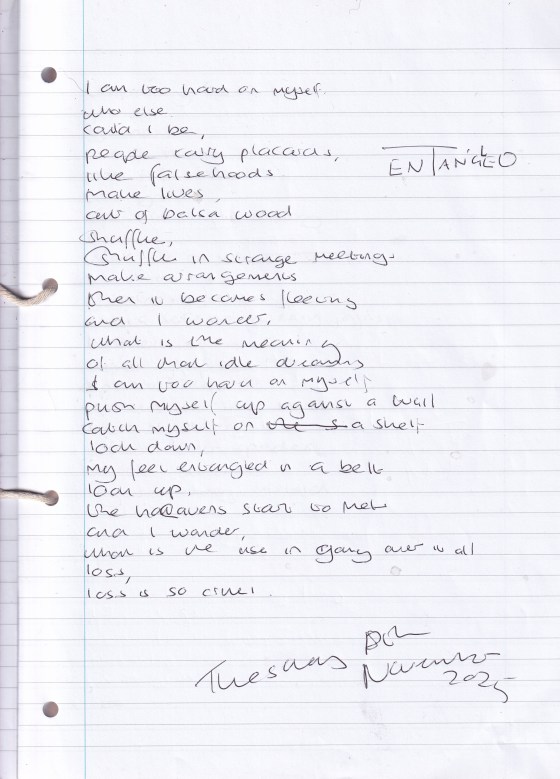 I am too hard on myself.
who else
could I be,
people carry placards,
ENTANGLED
like falsehoods
make lives,
out of balsa wood
shuffle,
Shuffle in strange meetings
make arrangements
then it becomes fleeting
and I wonder,
what is the meaning
of all that idle dreaming
I am too hard on myself
push myself up against a wall
catch myself on a shelf
look down,
my feet entangled in a belt
look up,
the heavens start to melt
and I wonder,
what is the use in going over it all
loss,
loss is so cruel
Tuesday
November
2025